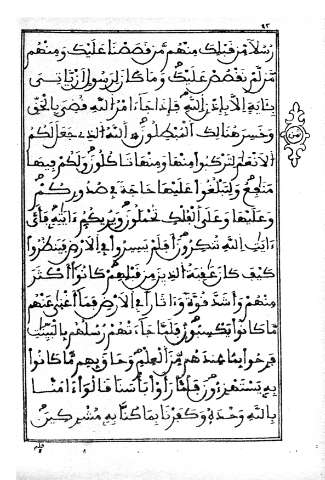 ٩٣
رسلا من قبلك منهم من قصصنا عليك ومنهم
من لم نقصص عليك وما كان لرسول ان ياتي
بئاية الا بإذن الله فإذا جاء امر الله قضي بالحق
وخسر هنالك المبطلون الله الذي جعل لكم
الانعم لتركبوا منها ومنها تاكلون ولكم فيها
منفع ولتبلغوا عليها حاجة في صدوركم
وعليها وعلى الفلك تحملون ويريكم ءايته فأي
ءايت الله تنكرون أفلم يسيروا في الارض فينظروا
كيف كان عقبة الذين من قبلهم كانوا أكثر
منهم وأشد قوة وءاثارا في الارض فما أغنى عنهم
ما كانوا يكسبون فلما جاءتهم رسلهم بالبينت
فرحوا بما عندهم من العلم وحاق بهم ما كانوا
به يستهزءون فلما رأوا بأسنا قالوا ءامنا
بالله وحده وكفرنا بما كنا به مشركين
فلم